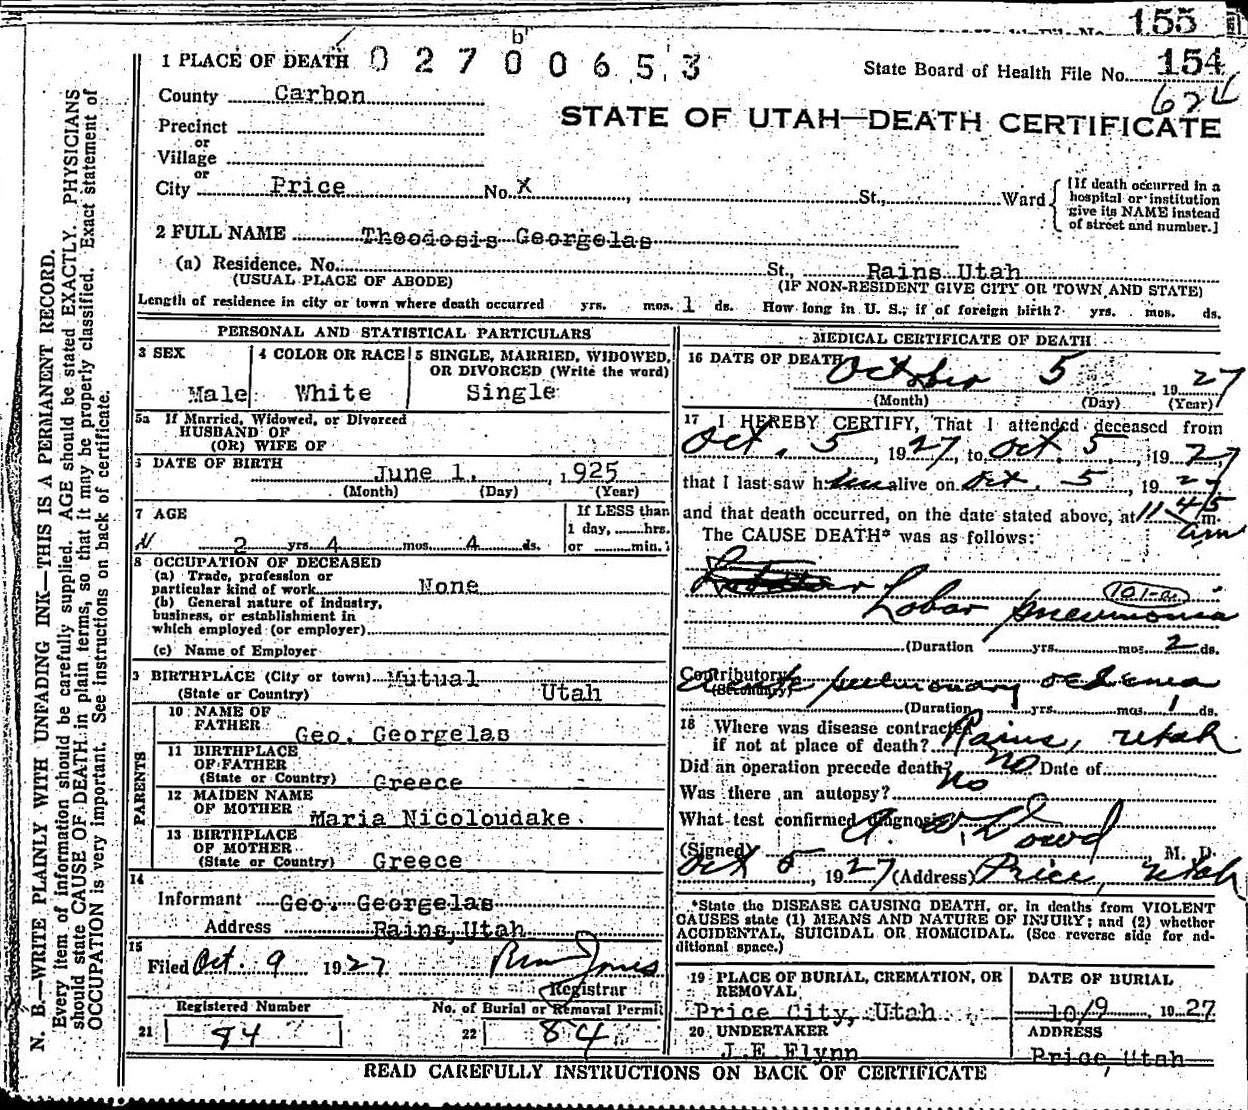 155
1 PLACE OF DEATH 0 2 7 0 0 6 5 3
State Board of Health File No. 154
624
County Carbon
STATE OF UTAH—DEATH CERTIFICATE
Precinct
or
Village
or
City Price No. X St., Ward
[If death occurred in a hospital or institution give its NAME instead of street and number.]
2 FULL NAME Theodosis Georgelas
(a) Residence. No. St., Rains Utah
(USUAL PLACE OF ABODE) (IF NON-RESIDENT GIVE CITY OR TOWN AND STATE)
Length of residence in city or town where death occurred yrs. mos. 1 ds. How long in U. S., if of foreign birth? yrs. mos. ds.
PERSONAL AND STATISTICAL PARTICULARS
3 SEX Male
4 COLOR OR RACE White
5 SINGLE, MARRIED, WIDOWED, OR DIVORCED (Write the word) Single
5a If Married, Widowed, or Divorced
HUSBAND OF
(OR) WIFE OF
6 DATE OF BIRTH June 1, 1925
(Month) (Day) (Year)
7 AGE
2 yrs. 4 mos. 4 ds.
If LESS than
1 day, hrs.
or min.
8 OCCUPATION OF DECEASED
(a) Trade, profession or
particular kind of work None
(b) General nature of industry,
business, or establishment in
which employed (or employer)
(c) Name of Employer
9 BIRTHPLACE (City or town) Mutual
(State or Country) Utah
PARENTS
10 NAME OF
FATHER Geo. Georgelas
11 BIRTHPLACE
OF FATHER
(State or Country) Greece
12 MAIDEN NAME
OF MOTHER Maria Nicoloudake.
13 BIRTHPLACE
OF MOTHER
(State or Country) Greece
14
Informant Geo. Georgelas
Address Rains, Utah
15
Filed Oct. 9 1927
Registrar
Registered Number No. of Burial or Removal Permit
21 94 22 84
MEDICAL CERTIFICATE OF DEATH
16 DATE OF DEATH October 5, 1927
(Month) (Day) (Year)
17 I HEREBY CERTIFY, That I attended deceased from
Oct. 5, 1927, to Oct. 5, 1927,
that I last saw him alive on Oct. 5, 1927
and that death occurred, on the date stated above, at 11 45 m.
am
The CAUSE DEATH* was as follows:
Lobar pneumonia
101-a
(Duration yrs. mos. 2 ds.
Contributory acute pulmonary oedema
(Secondary)
(Duration yrs. mos. 1 ds.
18 Where was disease contracted
if not at place of death? Rains, Utah
Did an operation precede death? no Date of
Was there an autopsy? no
What test confirmed diagnosis
(Signed) A. W. Dowd M. D.
Oct 5, 1927 (Address) Price, Utah
*State the DISEASE CAUSING DEATH, or, in deaths from VIOLENT
CAUSES state (1) MEANS AND NATURE OF INJURY; and (2) whether
ACCIDENTAL, SUICIDAL OR HOMICIDAL. (See reverse side for ad-
ditional space.)
19 PLACE OF BURIAL, CREMATION, OR
REMOVAL
Price City, Utah
DATE OF BURIAL
10/9, 1927
20 UNDERTAKER
J.E Flynn
ADDRESS
Price, Utah
READ CAREFULLY INSTRUCTIONS ON BACK OF CERTIFICATE
N. B.—WRITE PLAINLY WITH UNFADING INK—THIS IS A PERMANENT RECORD.
Every item of information should be carefully supplied. AGE should be stated EXACTLY. PHYSICIANS
should state CAUSE OF DEATH in plain terms, so that it may be properly classified. Exact statement of
OCCUPATION is very important. See instructions on back of certificate.